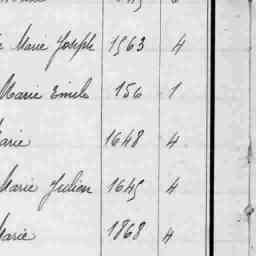 Marie Joseph 1963 4
Marie Emile 156 1
Marie 1648 4
Marie Julien 1645 4
Marie 1868 4